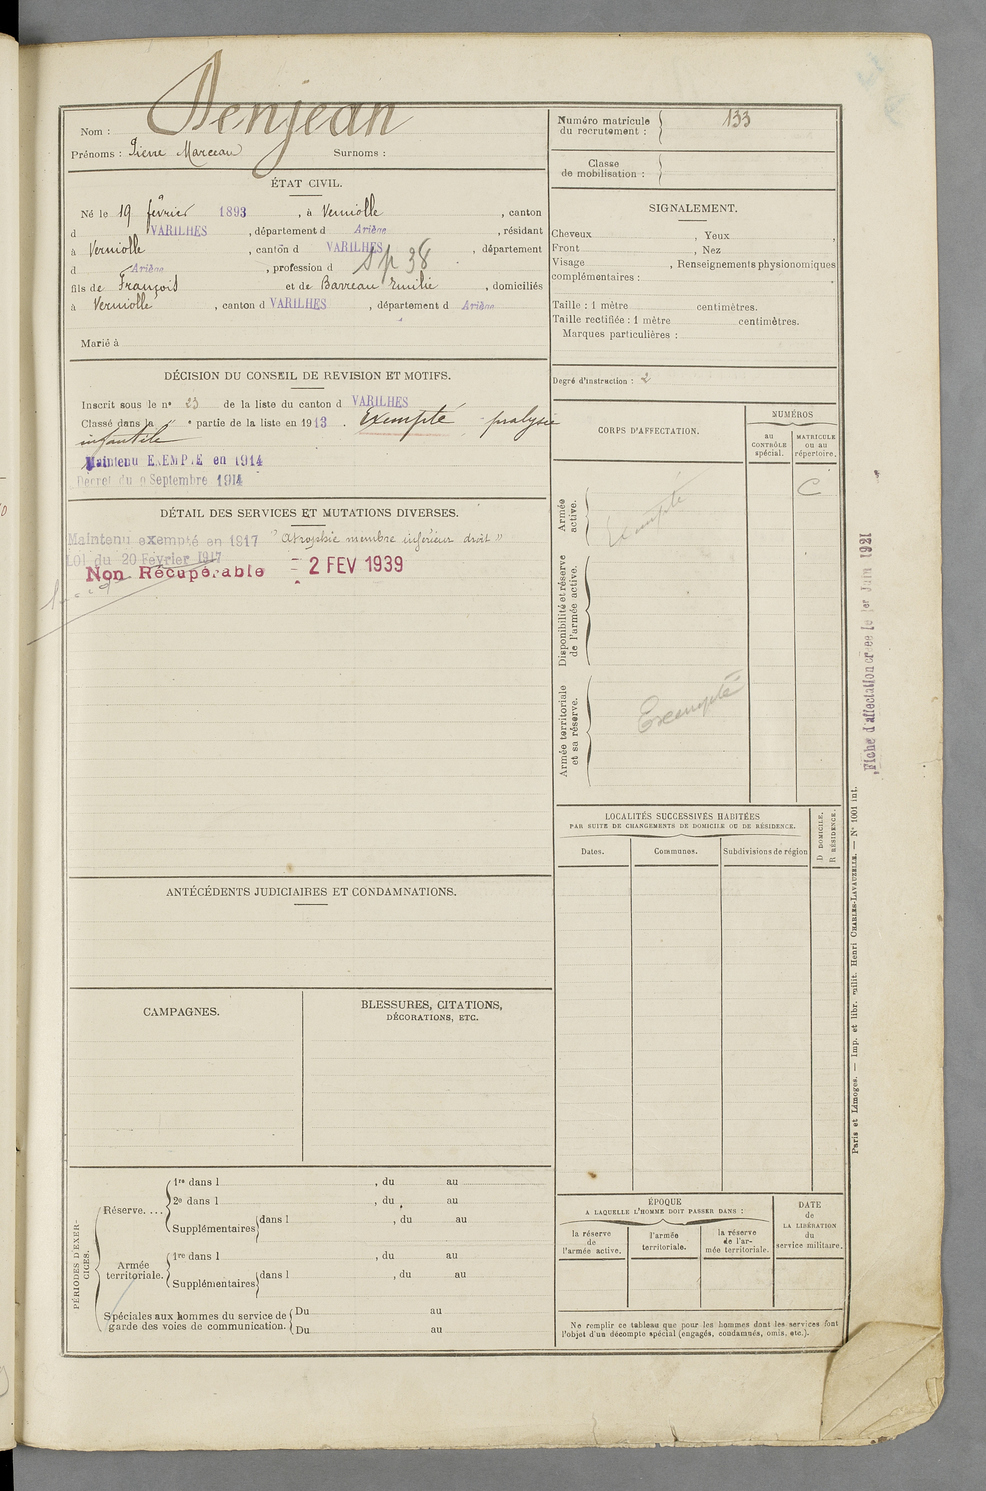 Denjean
Nom :
Prénoms : Pierre Marceau Surnoms :
ÉTAT CIVIL.
Né le 19 février 1893, à Verniolle, canton
d VARILHES, département d Ariège, résidant
à Verniolle, canton d VARILHES, département
d Ariège, profession d Sp 38
fils de François et de Barreau Emilie, domiciliés
à Verniolle, canton d VARILHES, département d Ariège
Marié à
DÉCISION DU CONSEIL DE REVISION ET MOTIFS.
Inscrit sous le n° 23 de la liste du canton d VARILHES
Classé dans la " e partie de la liste en 1913. Exempté - pralysie
infantile
Maintenu EXEMPTÉ en 1914
Décret du 9 Septembre 1914
DÉTAIL DES SERVICES ET MUTATIONS DIVERSES.
Maintenu exempté en 1917 "atrophie membre inférieur droit"
LOI du 20 Février 1917
Non Récupérable - 2 FEV 1939
ANTÉCÉDENTS JUDICIAIRES ET CONDAMNATIONS.
CAMPAGNES.
BLESSURES, CITATIONS,
DÉCORATIONS, ETC.
PÉRIODES D'EXER-
CICES.
Réserve....
1re dans l , du au
2e dans l , du au
Supplémentaires dans l , du au
Armée
territoriale.
1re dans l , du au
Supplémentaires dans l , du au
Spéciales aux hommes du service de
garde des voies de communication.
Du au
Du au
Numéro matricule
du recrutement : 133
Classe
de mobilisation :
SIGNALEMENT.
Cheveux , Yeux ,
Front , Nez
Visage , Renseignements physionomiques
complémentaires :
Taille : 1 mètre centimètres.
Taille rectifiée : 1 mètre centimètres.
Marques particulières :
Degré d'instruction : 2
CORPS D'AFFECTATION.
NUMÉROS
au
CONTRÔLE
spécial.
MATRICULE
ou au
répertoire.
Armée
active.
Exempté
C
Disponibilité et réserve
de l'armée active.
Armée territoriale
et sa réserve.
Exempté
LOCALITÉS SUCCESSIVES HABITÉES
PAR SUITE DE CHANGEMENTS DE DOMICILE OU DE RÉSIDENCE.
Dates.
Communes.
Subdivisions de région
D DOMICILE.
R RÉSIDENCE.
ÉPOQUE
A LAQUELLE L'HOMME DOIT PASSER DANS :
la réserve
de
l'armée active.
l'armée
territoriale.
la réserve
de l'ar-
mée territoriale.
DATE
de
LA LIBÉRATION
du
service militaire.
Ne remplir ce tableau que pour les hommes dont les services font
l'objet d'un décompte spécial (engagés, condamnés, omis, etc.).
Fiche d'affectation créée le 1er Juin 1921
Paris et Limoges. — Imp. et libr. milit. Henri CHARLES-LAVAUZELLE. — N° 1001 int.